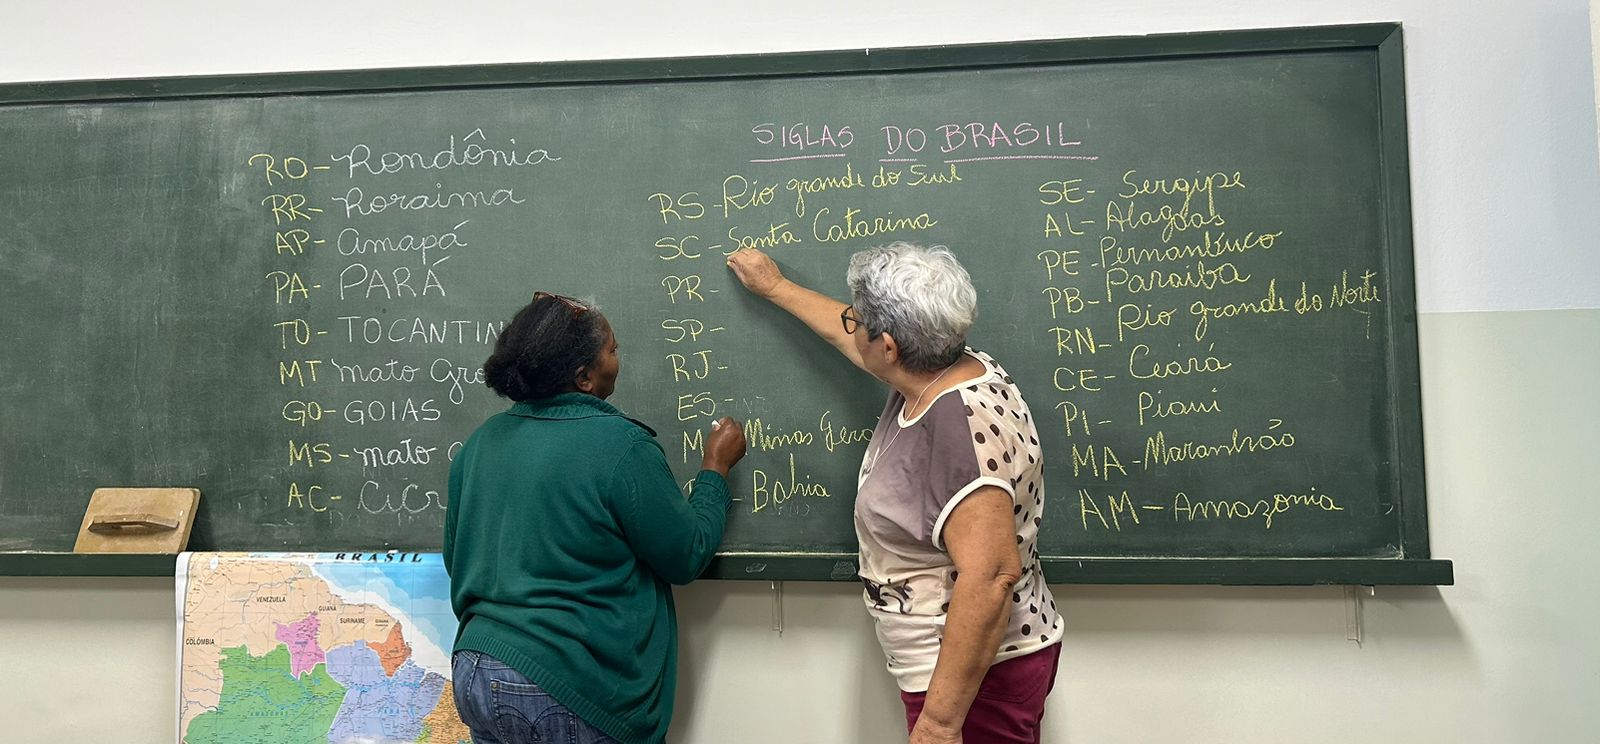 SIGLAS DO BRASIL
RO- Rondônia
RR- Roraima
AP- amapá
PA- PARÁ
TO- TOCANTIN
MT mato Gro
GO- GOIAS
MS- mato
AC-
RS- Rio grande do Sul
SC- Santa Catarina
PR-
SP-
RJ-
ES-
M Minas Gera
- Bahia
SE- Sergipe
AL- Alagoas
PE- Pernambuco
PB- Paraiba
RN- Rio grande do Norte
CE- Ceará
PI- Piaui
MA- Maranhão
AM- Amazonia
BRASIL
VENEZUELA
GUIANA
SURINAME
COLÔMBIA
AMAZONAS
PARÁ